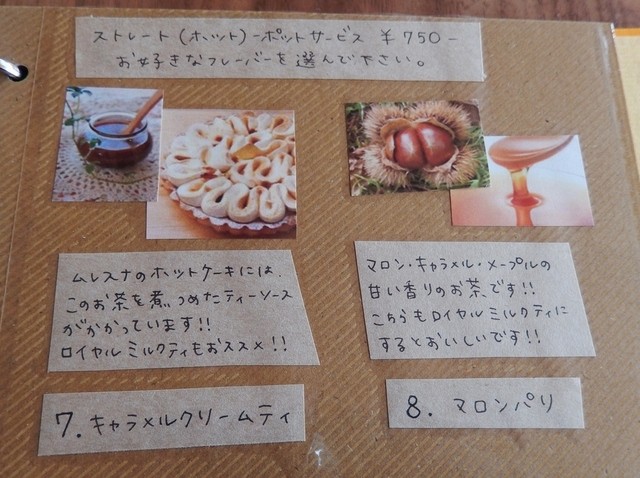 ストレート(ホット)-ポットサービス ¥750-
お好きなフレーバーを選んで下さい。
ムレスナのホットケーキには、
このお茶を煮つめたティーソース
がかかっています!!
ロイヤルミルクティもおススメ!!
マロン・キャラメル・メープルの
甘い香りのお茶です!!
こちらもロイヤルミルクティに
するとおいしいです!!
7. キャラメルクリームティ
8. マロンパリ